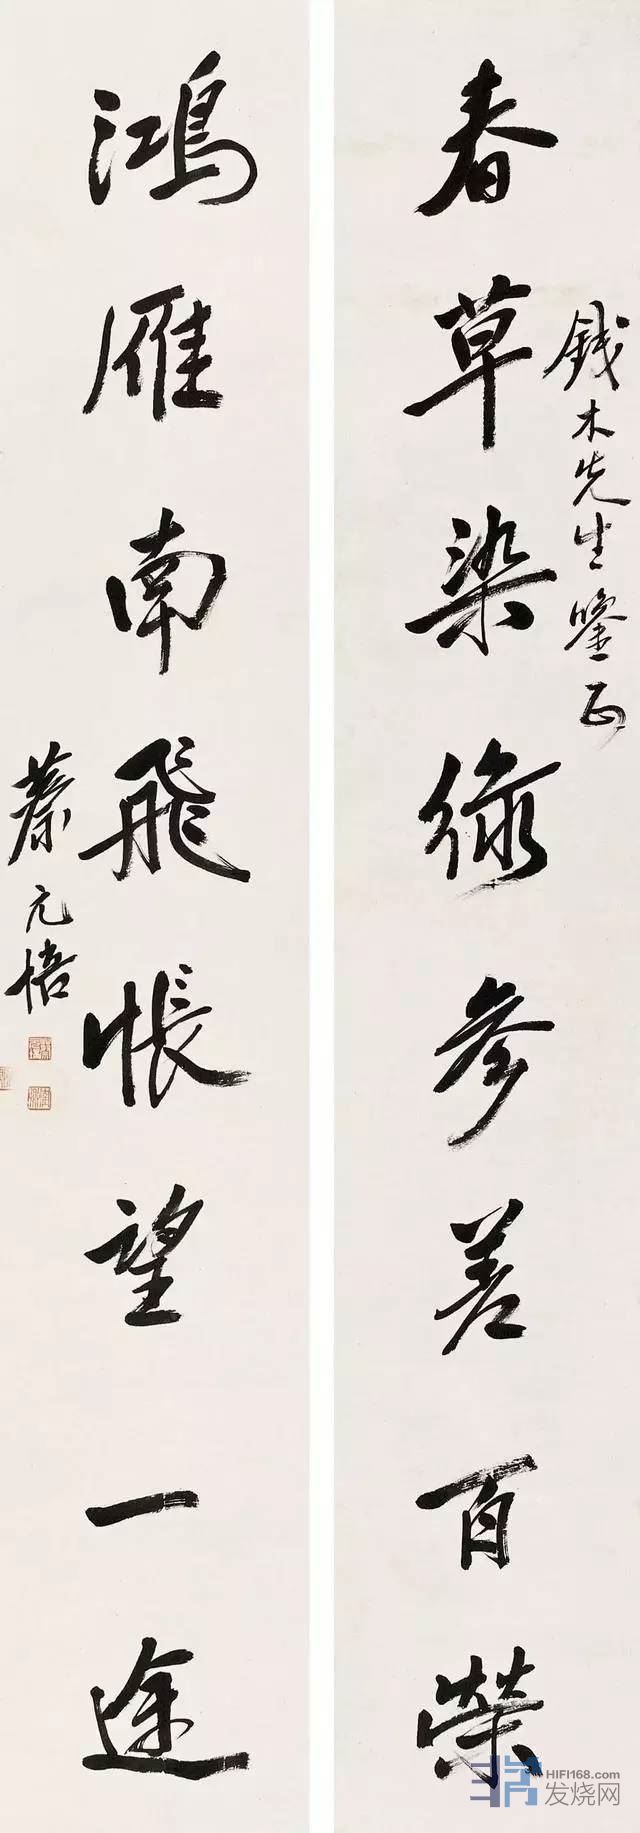 春草染綠參差百榮
錢木先生鑒正
鴻雁南飛悵望一途
蔡元培
HIFI168.com
发烧网